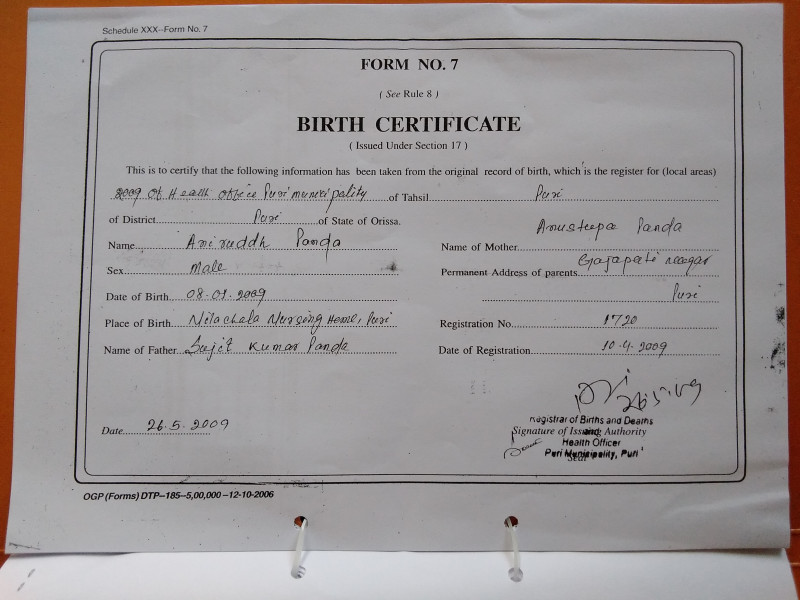 Schedule XXX--Form No. 7
FORM NO. 7
( See Rule 8 )
BIRTH CERTIFICATE
( Issued Under Section 17 )
This is to certify that the following information has been taken from the original record of birth, which is the register for (local areas)
2009 Of Health Office Puri municipality of Tahsil Puri
of District Puri of State of Orissa.
Name Aniruddh Panda
Sex male
Date of Birth 08-01-2009
Place of Birth Nilachala Nursing Home, Puri
Name of Father Sujit Kumar Panda
Name of Mother Anusteepa Panda
Permanent Address of parents Gajapati nagar
Puri
Registration No. 1720
Date of Registration 10.4.2009
Date 26.5.2009
Registrar of Births and Deaths
Signature of Issuing Authority
Health Officer
Puri Municipality, Puri
Seal
OGP (Forms) DTP–185–5,00,000–12-10-2006